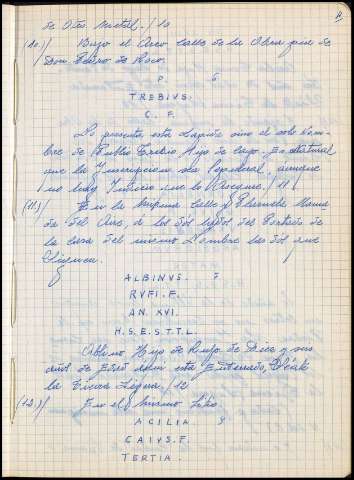 11
de Otro Metal. / 10
(10.)/ Bajo el Arco, Calle de la Obra que de
Don Pedro de Roco.
P 6
TREBIVS.
C. F.
Lo presenta esta Lapida sino el solo Nom-
bre de Publio Trebio Hijo de Cayo. Es Natural
que la Ynscripcion sea Sepulcral, aunque
no hay Yndicio que lo Asegure. / 11
(11.)/ En la misma Calle y
del Arco, á los dos lados del Portado de
la Casa del mismo Nombre las dos que
Siguen.
ALBINVS. 7
RVFI. F.
AN. XVI.
H. S. E. S. T. T. L.
Albino Hijo de Rufo de Diez y seis
años de Edad aqui está Enterrado, Séale
la Tierra Ligera. / 12
(12.)/ En el mismo Sitio.
ACILIA 9
CAIVS. F.
TERTIA.